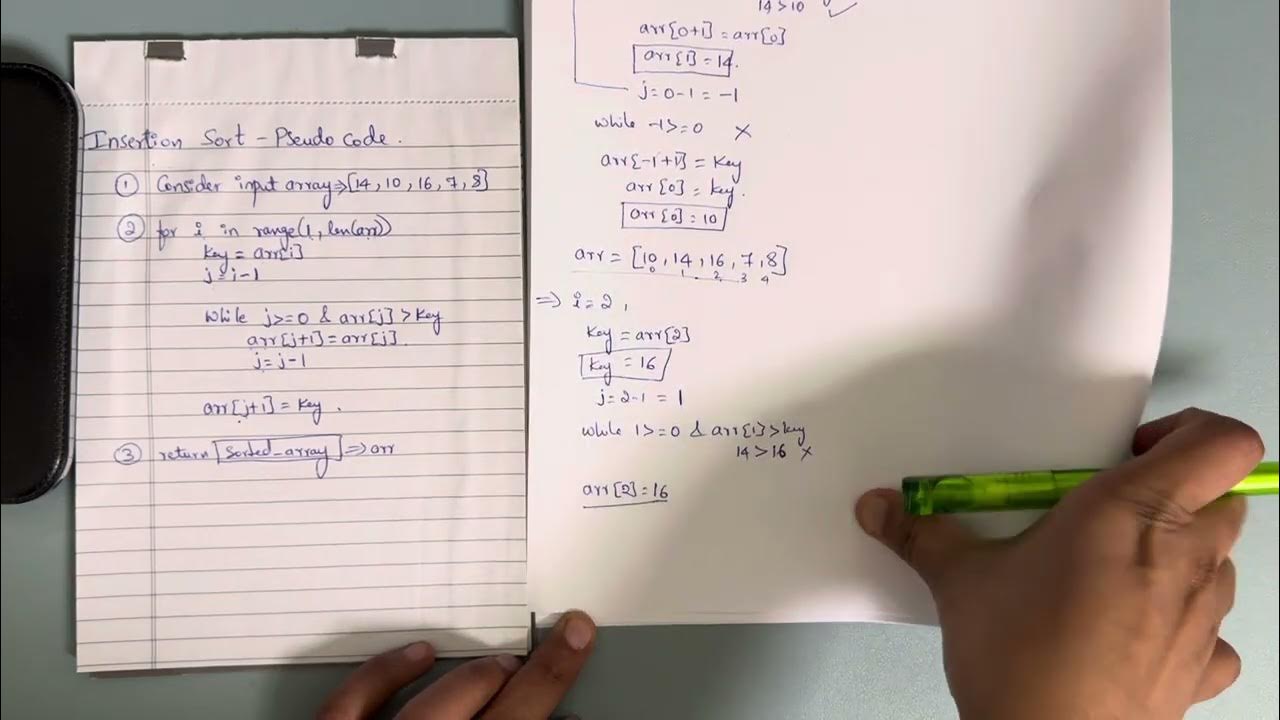 Insertion Sort - Pseudo Code.
① Consider input array⇒[14, 10, 16, 7, 8]
② for i in range(1, len(arr))
Key = arr[i]
j = i-1
while j>=0 & arr[j] > Key
arr[j+1] = arr[j]
j = j-1
arr[j+1] = Key.
③ return sorted_array ⇒ arr
14 > 10 ✓
arr[0+1] = arr[0]
arr[1] = 14.
j = 0-1 = -1
while -1>=0 ×
arr[-1+1] = Key
arr[0] = Key.
arr[0] = 10
arr = [10, 14, 16, 7, 8]
0 1 2 3 4
⇒ i = 2,
Key = arr[2]
Key = 16
j = 2-1 = 1
while 1>=0 & arr[1] > Key
14 > 16 ×
arr[2] = 16